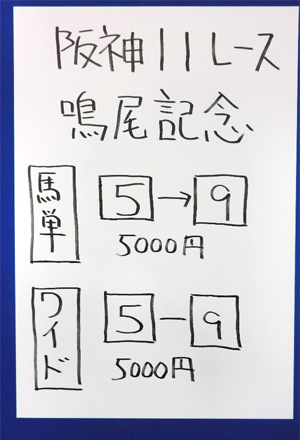 阪神11レース
鳴尾記念
馬単
5→9
5000円
ワイド
5-9
5000円